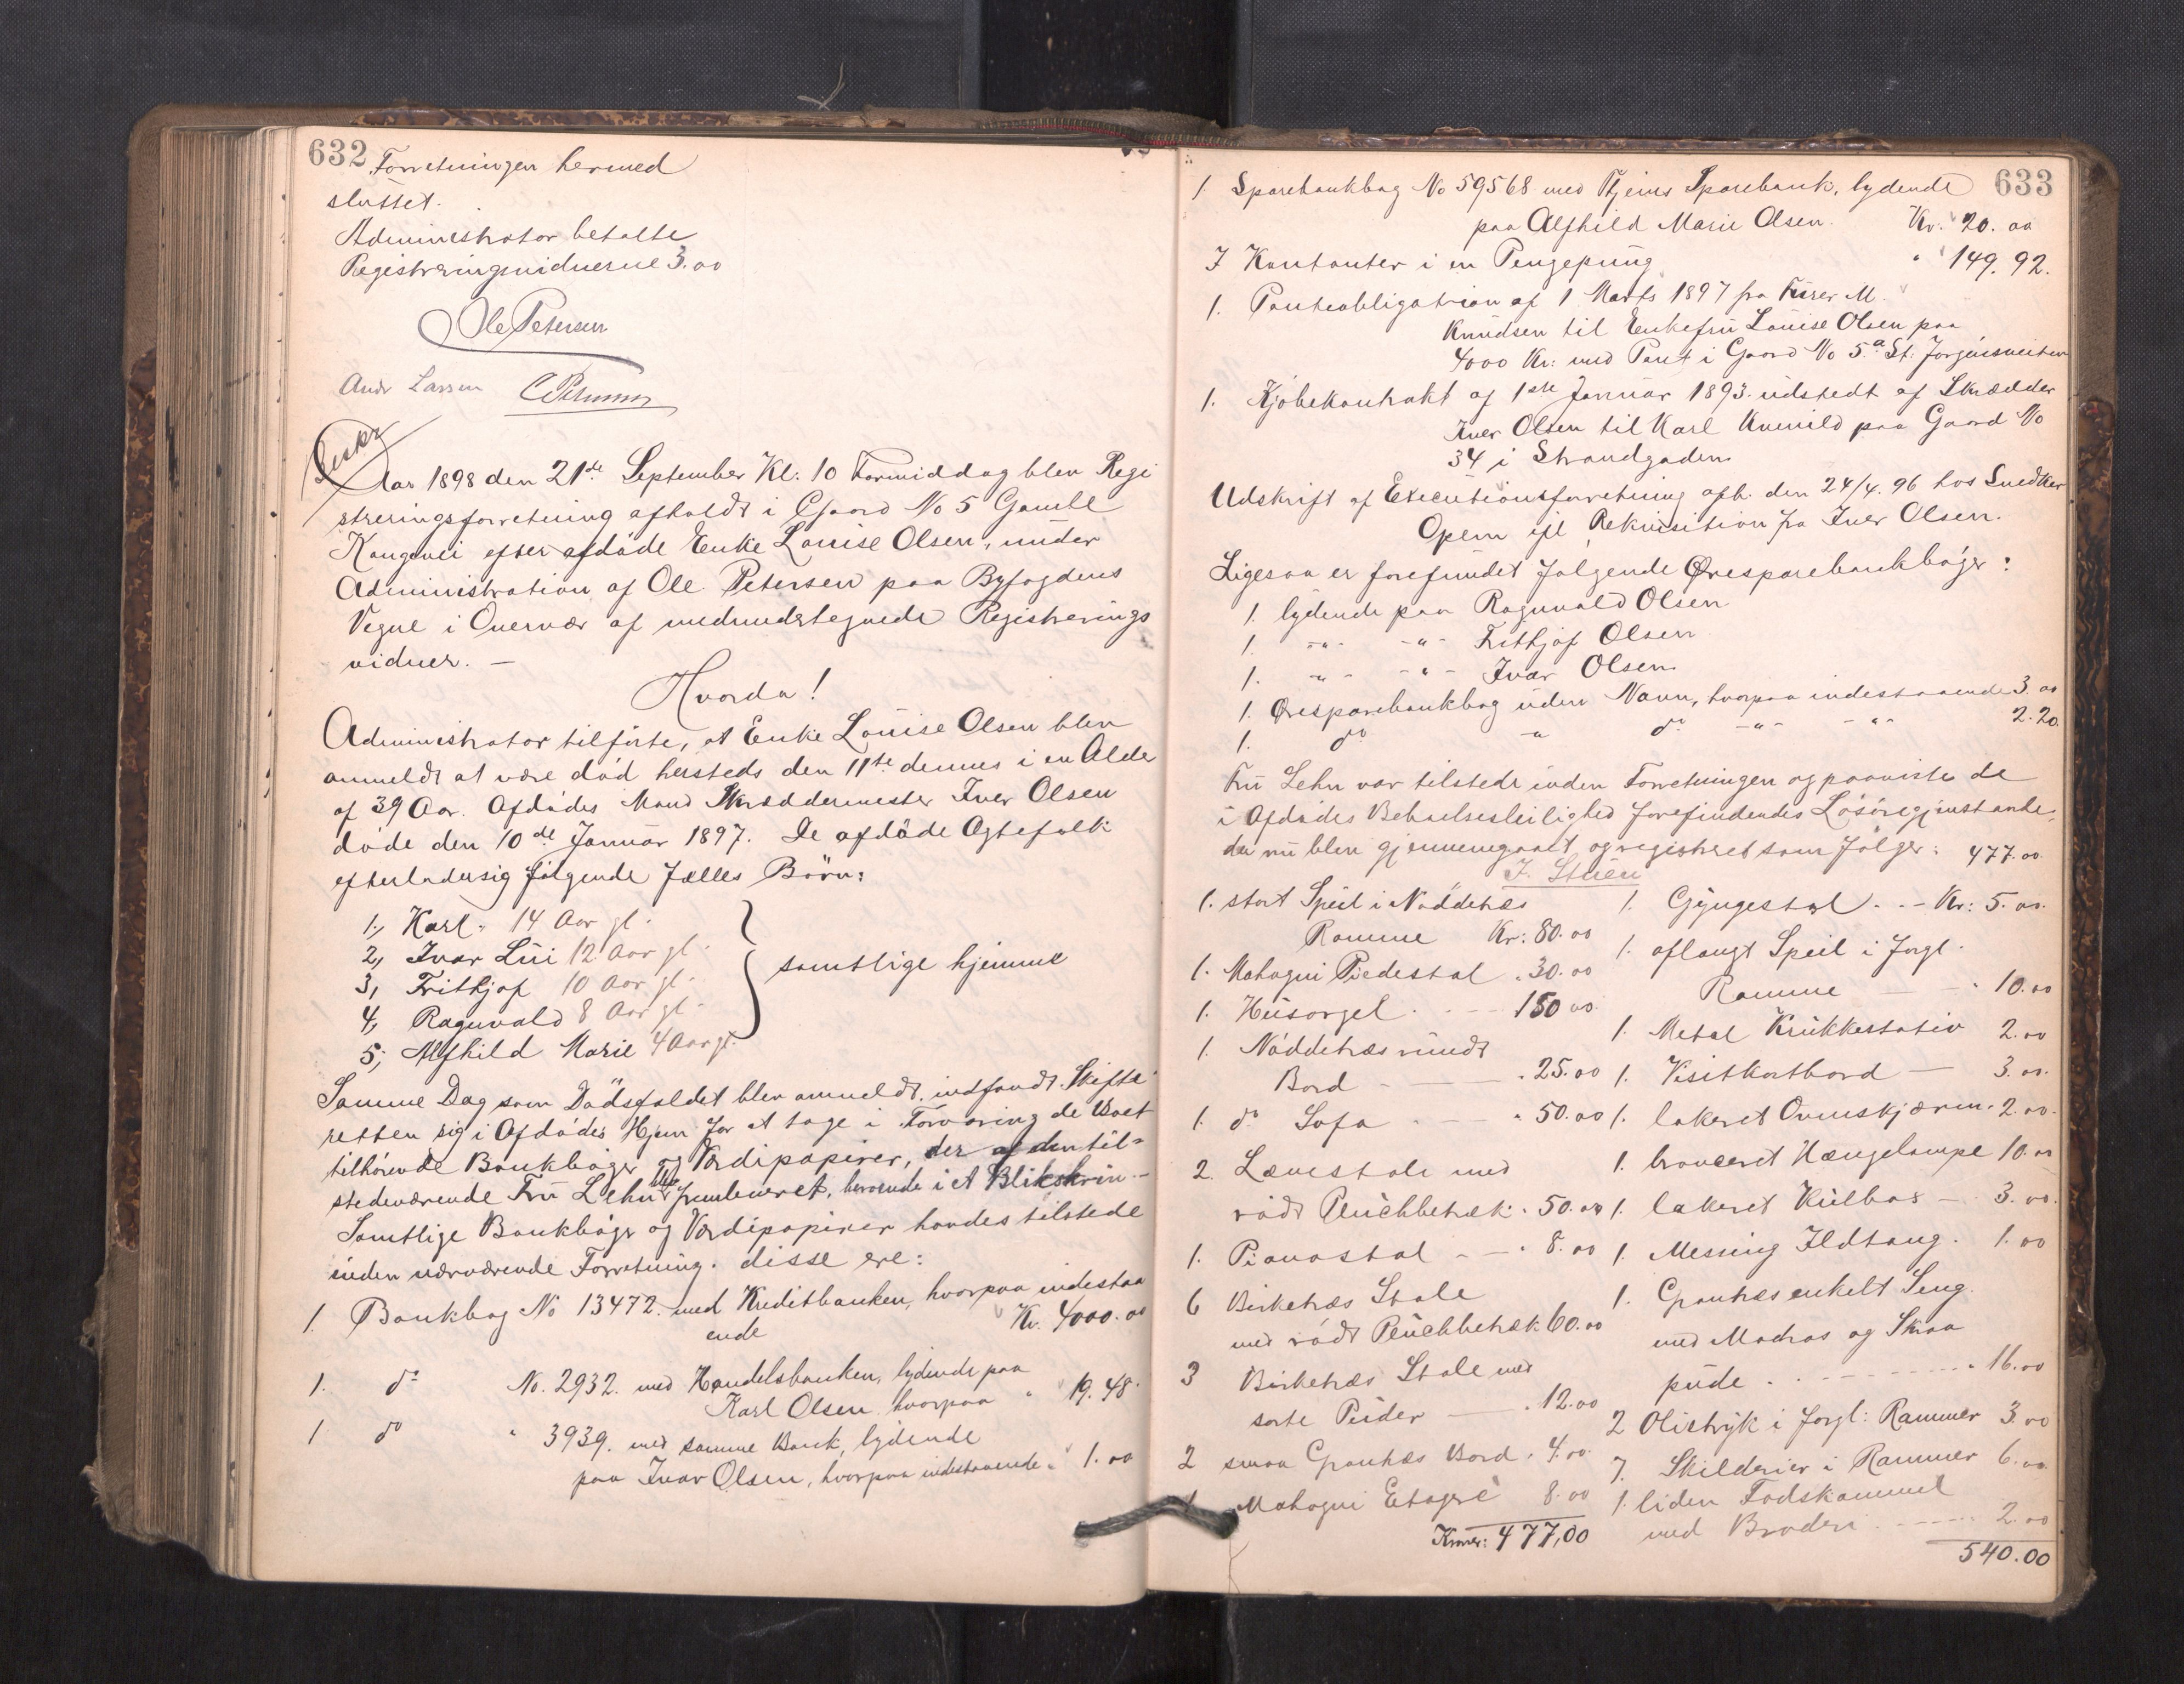 632
Forretningen hermed
sluttet.
Administrator betalte
Registreringsvidnerne 3.00
Ole Petersen
Andr Larsen C Petersen
Aar 1898 den 21de September Kl. 10 Formiddag blev Regi
streringsforretning afholdt i Gaard No 5 Gamle
Kongevei efter afdöde Enke Louise Olsen, under
Administration af Ole Petersen paa Byfogdens
Vegne i Overvær af medundertegnede Registrerings
vidner. —
Hvorda!
Administrator tilförte, at Enke Louise Olsen blev
anmeldt at være död hersteds den 11te dennes i en Alder
af 39 Aar. Afdödes Mand Skræddermester Iver Olsen
döde den 10de Januar 1897. De afdöde Ægtefolk
efterlader sig fölgende fælles Börn:
1, Karl 14 Aar gl.
2, Ivar Lüi 12 Aar gl.
3, Frithjof 10 Aar gl.
4, Ragnvald 8 Aar gl.
5, Alfhild Marie 4 Aar gl.
samtlige hjemme
Samme Dag som Dödsfaldet blev anmeldt, indfandt Skifte
retten sig i Afdödes Hjem for at tage i Forvaring de Boet
tilhörende Bankböger og Værdipapirer, der af den til=
stedeværende Fru Lehn blev fremleveret, beroende i et Blikskrin. —
Samtlige Bankböger og Værdipapirer havdes tilstede
under nærværende Forretning. disse ere:
1. Bankbog No 13472. med Kreditbanken, hvorpaa indestaa
ende Kr. 4000.00
1. do No. 2932. med Handelsbanken, lydende paa
Karl Olsen hvorpaa " 19.48.
1 do " 3939. med samme Bank, lydende
paa Ivar Olsen, hvorpaa indestaaende " 1.00
633
1. Sparebankbog No 59568 med Thjems Sparebank, lydende
paa Alfhild Marie Olsen. Kr. 20.00
I Kontanter i en Pengepung " 149.92.
1. Panteobligation af 1 Marts 1897 fra M.
Knudsen til Enkefru Louise Olsen paa
4000 Kr. med Pant i Gaard No 5a St. Jørgensveiten
1. Kjöbekontrakt af 1ste Januar 1893. udstedt af Skrædder
Iver Olsen til Karl Kvenild paa Gaard No
34 i Strandgaden
Udskrift af Executionsforretning afh. den 24/4.96 hos Snedker
Opem eft Rekvisition fra Iver Olsen.
Ligesaa er forefundet fölgende Öresparebankböger:
1. lydende paa Ragnvald Olsen
1. -"- -"- Frithjof Olsen
1. -"- -"- Ivar Olsen
1. Öresparebankbog uden Navn, hvorpaa indestaaende 3.00
1. do -" do -"- -"- 2.20
Fru Lehn var tilstede under Forretningen og paaviste de
i Afdödes Beboelsesleilighed forefindendes Lösöregjenstande,
der nu blev gjennemgaaet og registreret som fölger: 477.00
I Stuen
1. stort Speil i Nöddetræs
Ramme Kr: 80.00
1. Mahogni Piedestal " 30.00
1. Husorgel 150.00
1. Nöddetræs rundt
Bord " 25.00
1. do Sofa " 50.00
2. Lænestole med
rödt Pluchbetræk " 50.00
1. Pianostol " 8.00
6 Birketræs Stole
med rödt Pluchbetræk 60.00
3 Birketræs Stole med
sorte Puder " 12.00
2 smaa Grantræs Bord " 4.00
1 Mahogni Etageré 8.00
Kroner: 477,00
1. Gyngestol Kr: 5.00
1. aflangt Speil i forgl.
Ramme " 10.00
1. Metal Krukkestativ 2.00
1. Visitkortbord 3.00
1. lakeret Ovnskjærm 2.00
1. bronceret Hængelampe 10.00
1. lakeret Kulbox 3.00
1. Messing Ildtang 1.00
1. Grantræs enkelt Seng
med Madras og Skraa
pude " 16.00
2 Olietryk i forgl: Rammer 3.00
7. Skilderier i Rammer 6.00
1. liden Fodskammel
med Broderi 2.00
540.00